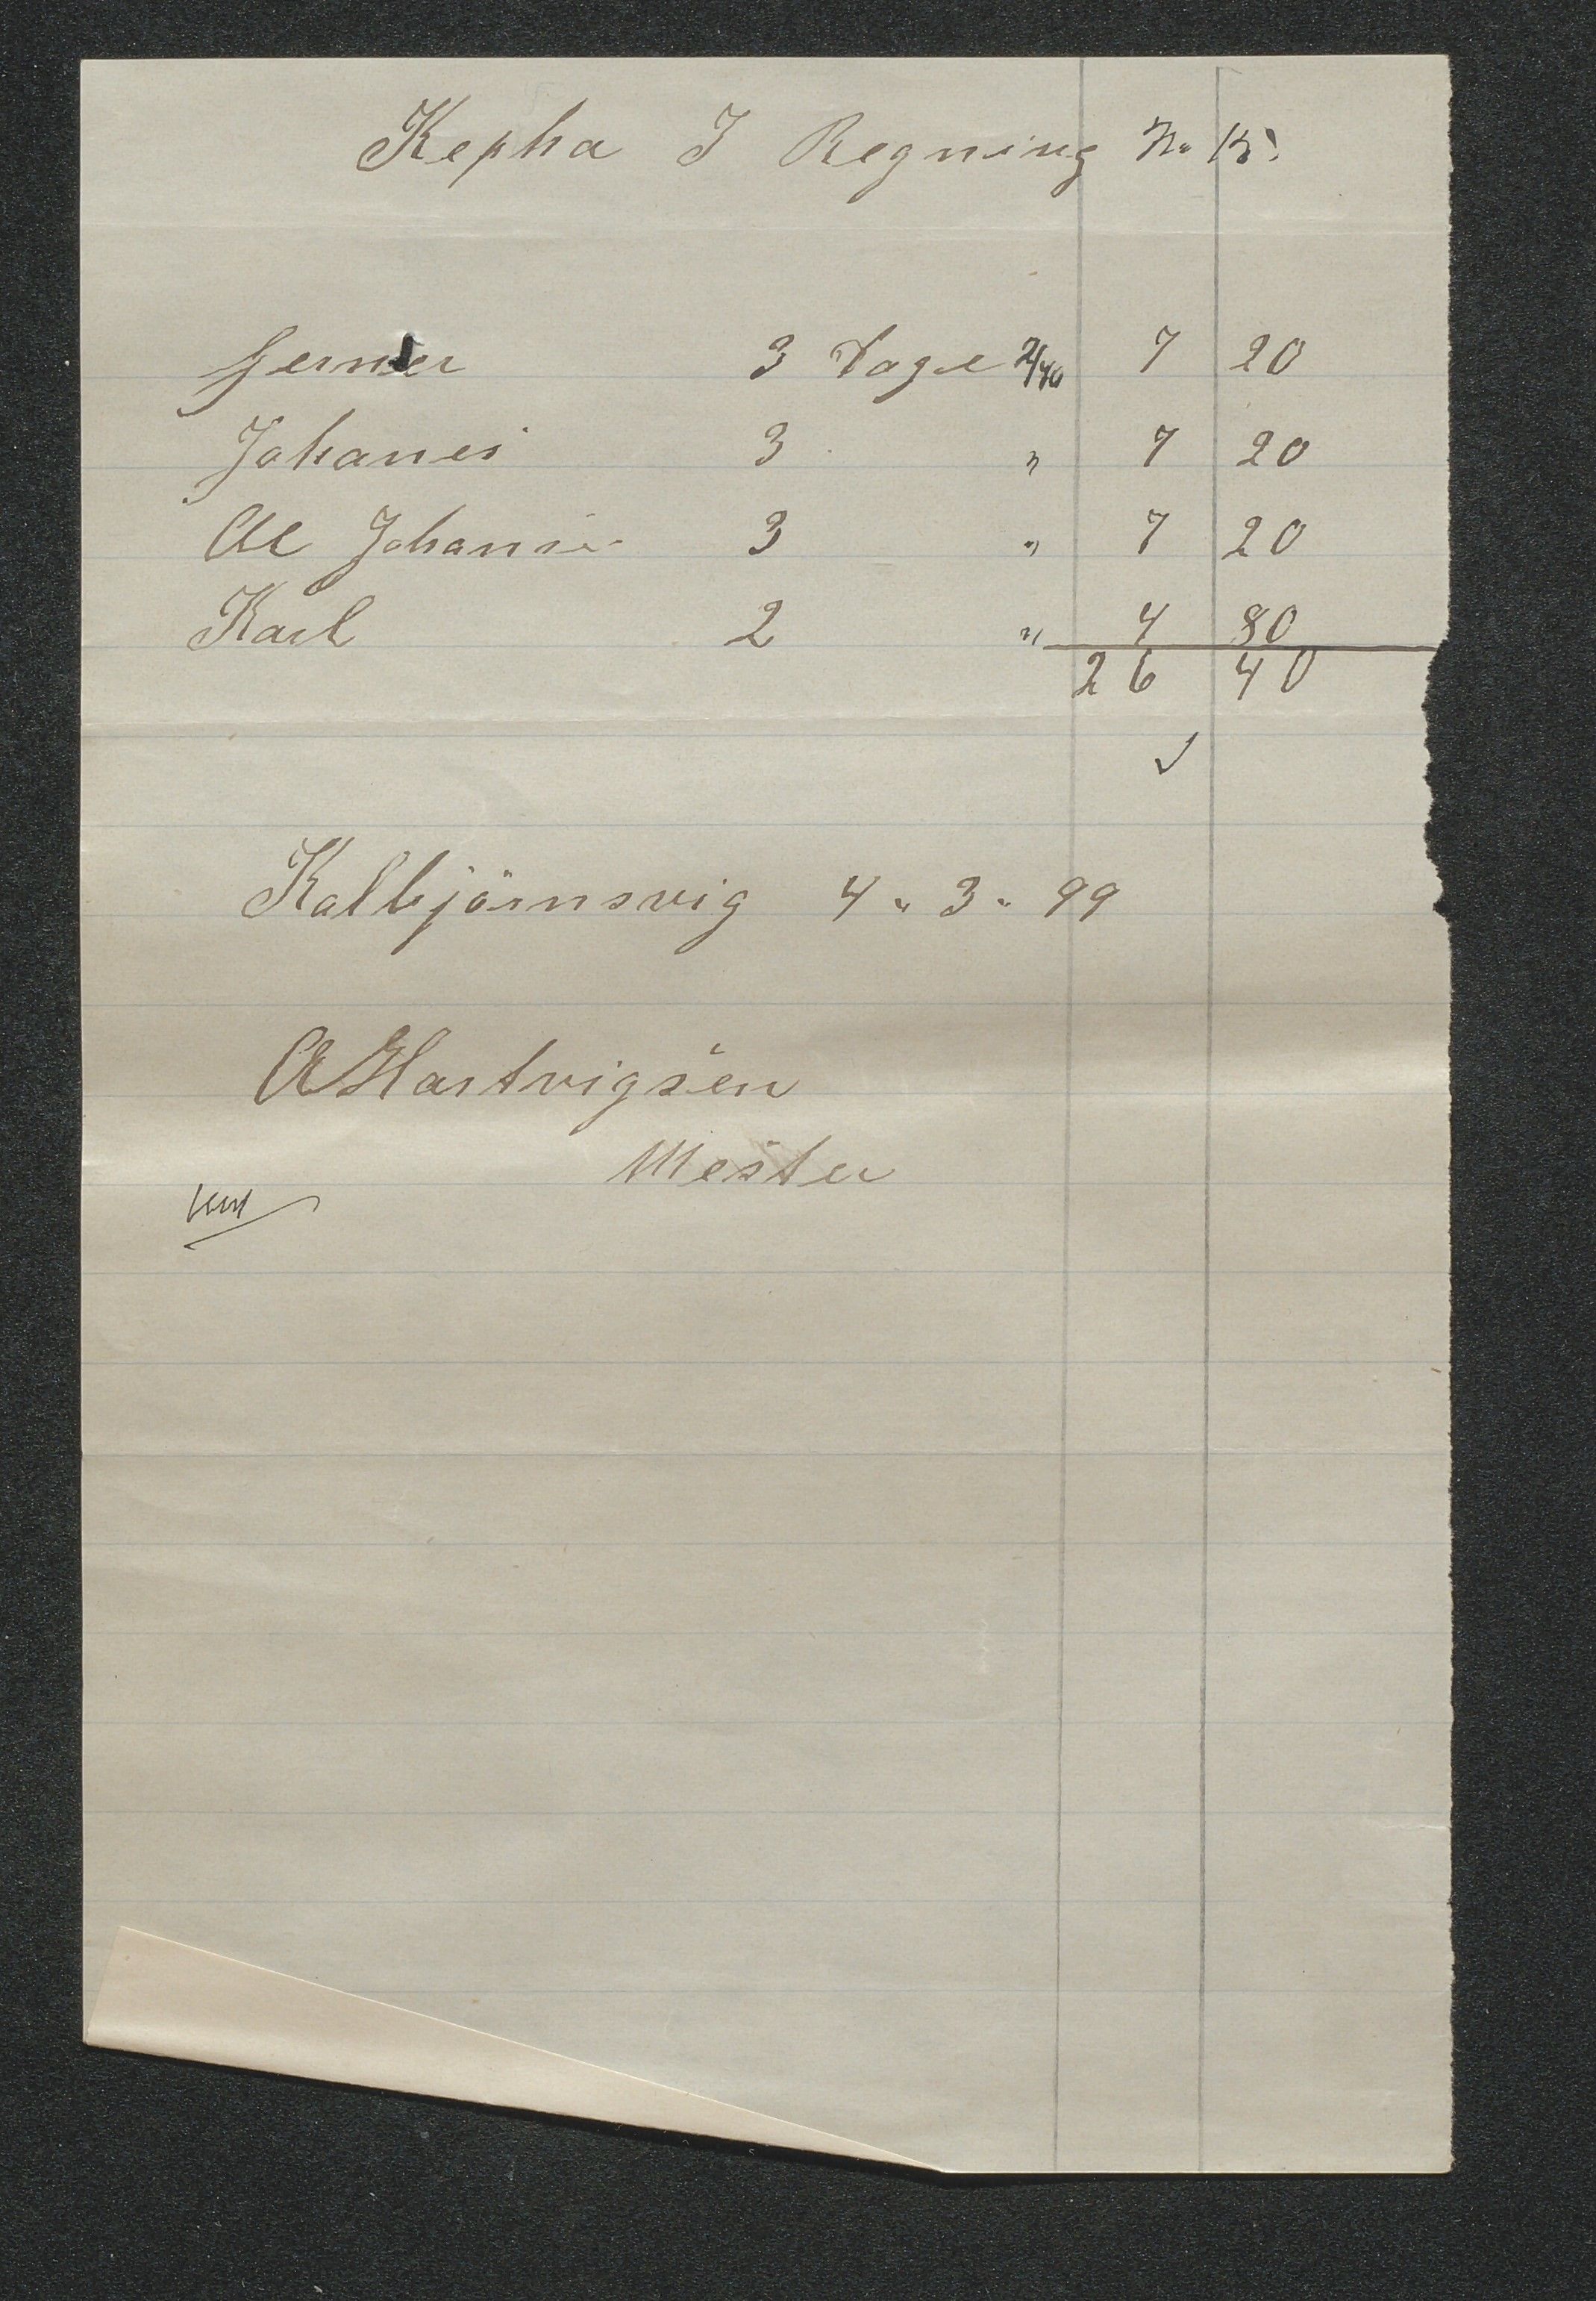 Kepha I Regning No 15.
Gerner 3 Dage 2/40 7 20
Johanes 3 " 7 20
Ol Johanes 3 " 7 20
Karl 2 " 4 80
26 40
✓
Kolbjörnsvig 4 " 3 " 99
A Hartvigsen
Mester